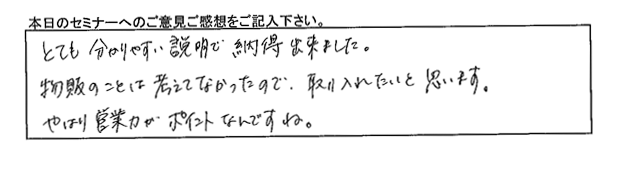 本日のセミナーへのご意見ご感想をご記入下さい。
とても分かりやすい説明で納得出来ました。
物販のことは考えてなかったので、取り入れたいと思います。
やはり営業力がポイントなんですね。